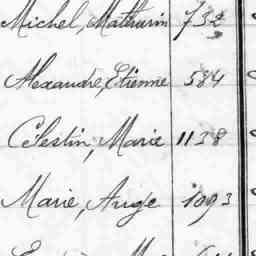 Michel, Mathurin 732
Alexandre, Etienne 584
Célestin, Marie 1138
Marie, Ange 1093